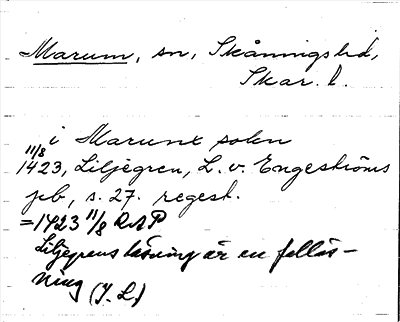 Marum, sn, Skånings hd,
Skar. l.
i Marume sokn
11/8
1423, Liljegren, L. v. Engeströms
jeb, s. 27. regest.
=1423 11/8 RAP
Liljegrens läsning är en felläs-
ning (I. L.)